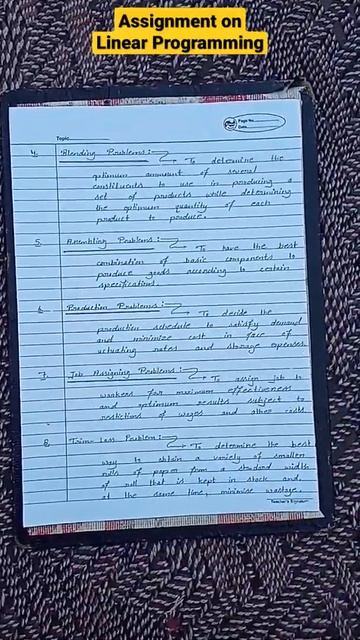 Assignment on
Linear Programming
Page No.
Date
Topic
4. Blending Problems :- To determine the
optimum amount of several
constituents to use in producing a
set of products while determining
the optimum quantity of each
product to produce.
5. Assembling Problems :- To have the best
combination of basic components to
produce goods according to certain
specifications.
6. Production Problems :- To decide the
production schedule to satisfy demand
and minimize cost in face of
uctuating rates and storage expenses.
7. Job Assigning Problems :- To assign job to
workers for maximum effectiveness
and optimum results subject to
restictions of wages and other costs.
8. Trim-Loss Problem :- To determine the best
way to obtain a variety of smaller
rolls of paper from a standard width
of roll that is kept in stock and,
at the same time, minimise wastage.
Teacher's Signature